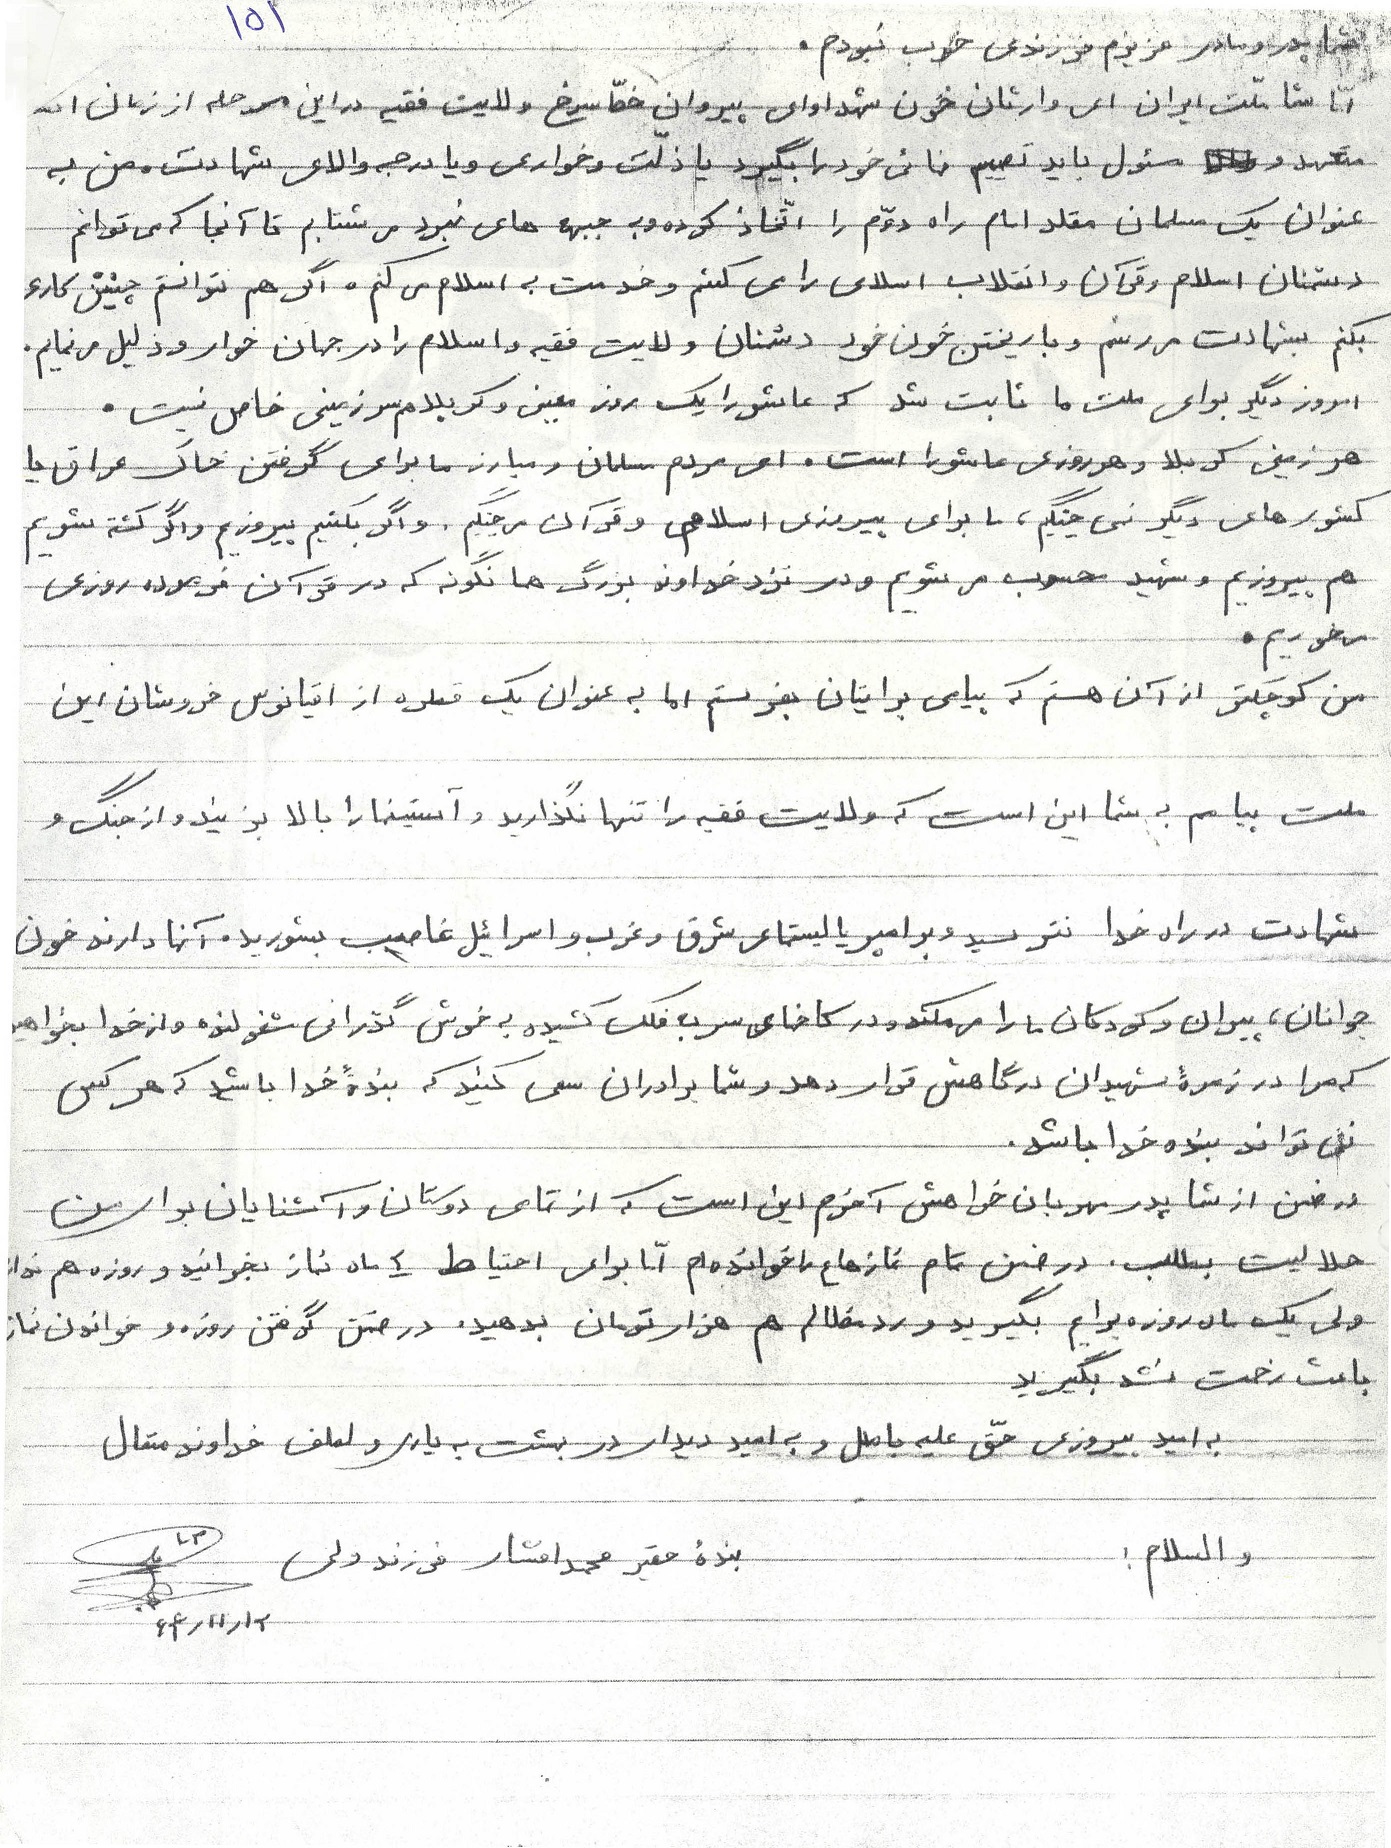 ۱۵۱
شما پدر و مادر عزیزم فرزندی خوب نبودم.
امّا شما ملّت ایران ای وارثان خون شهدا و ای پیروان خطّ سرخ ولایت فقیه در این مرحله از زمان امت
متعهد و مسئول باید تصمیم نهائی خود را بگیرد یا ذلّت و خواری و یا درجه والای شهادت. من به
عنوان یک مسلمان مقلد امام راه دوّم را اتّخاذ کرده و به جبهه های نبرد می شتابم تا آنجا که می توانم
دشمنان اسلام و قرآن و انقلاب اسلامی را می کشم و خدمت به اسلام می کنم. اگر هم نتوانستم چنین کاری
بکنم بشهادت می رسم و با ریختن خون خود دشمنان ولایت فقیه و اسلام را در جهان خوار و ذلیل می نمایم.
امروز دیگر برای ملت ما ثابت شد که عاشورا یک روز معین و کربلا هم سرزمینی خاص نیست.
هر زمینی کربلا و هر روزی عاشورا است. ای مردم مسلمان و مبارز ما برای گرفتن خاک عراق یا
کشورهای دیگر نمی جنگیم، ما برای پیروزی اسلام و قرآن می جنگیم. و اگر بکشیم پیروزیم و اگر کشته شویم
هم پیروزیم و شهید محسوب می شویم و در نزد خداوند بزرگ همانگونه که در قرآن فرموده روزی
می خوریم.
من کوچکتر از آن هستم که پیامی برایتان بفرستم اما به عنوان یک قطره از اقیانوس خروشان این
ملت پیامم به شما این است که ولایت فقیه را تنها نگذارید و آستینها را بالا بزنید و از جنگ و
شهادت در راه خدا نترسید و بر امپریالیستهای شرق و غرب و اسرائیل غاصب بشورید. آنها دارند خون
جوانان، پیران و کودکان ما را می مکند و در کاخهای سر به فلک کشیده به خوش گذرانی مشغولند و از خدا بخواهید
که مرا در زمرهٔ شهیدان درگاهش قرار دهد و شما برادران سعی کنید که بندهٔ خدا باشید که هر کس
نمی تواند بنده خدا باشد.
در ضمن از شما پدر مهربان خواهش آخرم این است که از تمامی دوستان و آشنایان برای من
حلالیت بطلب. در ضمن تمام نمازهایم را خوانده ام امّا برای احتیاط ۶ ماه نماز بخوانید و روزه هم ندارم
ولی یک ماه روزه برایم بگیرید و رد مظالم هم هزار تومان بدهید. در ضمن گرفتن روزه و خواندن نماز
باعث زحمت نشد بگیرید
به امید پیروزی حقّ علیه باطل و به امید دیدار در بهشت به یاری و لطف خداوند متعال
والسلام: بندهٔ حقیر محمد افشار فرزند ولی
۶۴/۱۱/۱۲